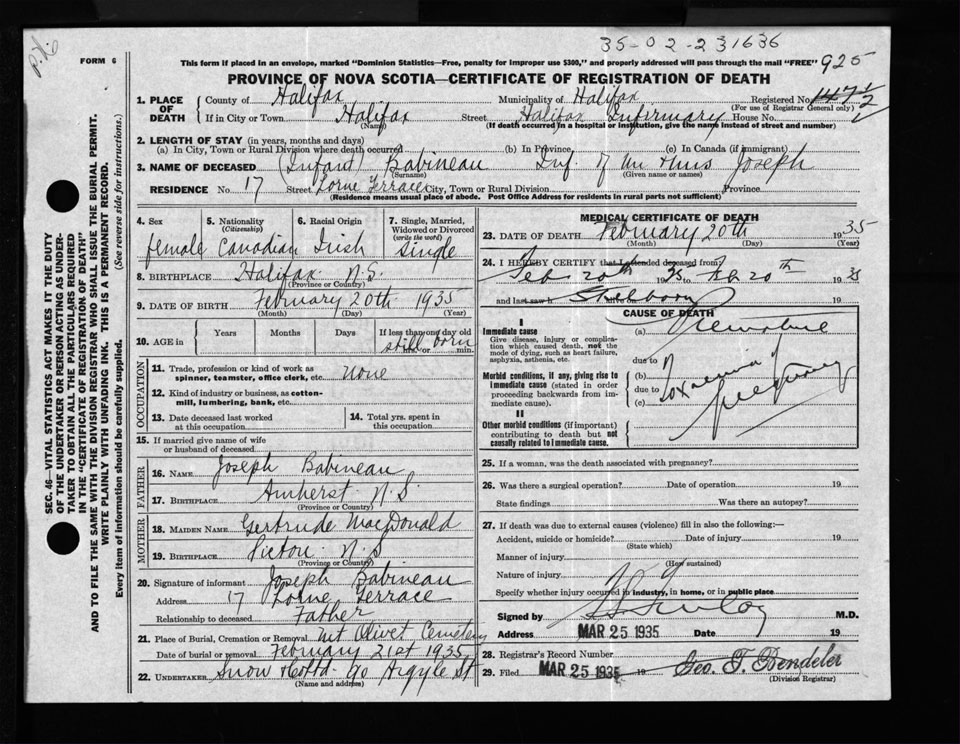 35-02-231636
P.K.
FORM 6
This form if placed in an envelope, marked "Dominion Statistics—Free, penalty for improper use $300," and properly addressed will pass through the mail "FREE" 925
PROVINCE OF NOVA SCOTIA—CERTIFICATE OF REGISTRATION OF DEATH
1. PLACE OF DEATH
County of Halifax Municipality of Halifax Registered No. 147 1/2
(For use of Registrar General only)
If in City or Town Halifax Street Halifax Infirmary House No.
(Name) (If death occurred in a hospital or institution, give the name instead of street and number)
2. LENGTH OF STAY (in years, months and days)
(a) In City, Town or Rural Division where death occurred (b) In Province (c) In Canada (if immigrant)
3. NAME OF DECEASED (Infant) Babineau Inf. of Mr & Mrs Joseph
(Surname) (Given name or names)
RESIDENCE No. 17 Street Lorne Terrace City, Town or Rural Division Province
(Residence means usual place of abode. Post Office Address for residents in rural parts not sufficient)
4. Sex female
5. Nationality (Citizenship) Canadian
6. Racial Origin Irish
7. Single, Married, Widowed or Divorced (write the word) Single
8. BIRTHPLACE Halifax N.S.
(Province or Country)
9. DATE OF BIRTH February 20th 1935
(Month) (Day) (Year)
10. AGE in Years Months Days If less than one day old
still born
hrs. or min.
OCCUPATION
11. Trade, profession or kind of work as spinner, teamster, office clerk, etc. none
12. Kind of industry or business, as cotton-mill, lumbering, bank, etc.
13. Date deceased last worked at this occupation
14. Total yrs. spent in this occupation
15. If married give name of wife or husband of deceased
FATHER
16. NAME Joseph Babineau
17. BIRTHPLACE Amherst N.S
(Province or Country)
MOTHER
18. MAIDEN NAME Gertrude MacDonald
19. BIRTHPLACE Pictou N.S
(Province or Country)
20. Signature of informant Joseph Babineau
Address 17 Lorne Terrace
Relationship to deceased Father
21. Place of Burial, Cremation or Removal Mt Olivet Cemetery
Date of burial or removal February 21st 1935
22. UNDERTAKER Snow & Co Ltd 90 Argyle St
(Name and address)
MEDICAL CERTIFICATE OF DEATH
23. DATE OF DEATH February 20th 1935
(Month) (Day) (Year)
24. I HEREBY CERTIFY that I attended deceased from
Feb 20th 1935 Feb 20th 1935
and last saw h Stillborn 19
CAUSE OF DEATH
I
Immediate cause
Give disease, injury or complication which caused death, not the mode of dying, such as heart failure, asphyxia, asthenia, etc.
(a) Premature
due to
Morbid conditions, if any, giving rise to immediate cause (stated in order proceeding backwards from immediate cause).
(b) Toxaemia of
due to
(c) pregnancy
II
Other morbid conditions (if important) contributing to death but not causally related to immediate cause.
25. If a woman, was the death associated with pregnancy?
26. Was there a surgical operation? Date of operation 19
State findings Was there an autopsy?
27. If death was due to external causes (violence) fill in also the following:—
Accident, suicide or homicide? Date of injury 19
(State which)
Manner of injury
(How sustained)
Nature of injury
Specify whether injury occurred in industry, in home, or in public place
Signed by M.D.
Address MAR 25 1935 Date 19
28. Registrar's Record Number
29. Filed MAR 25 1935 19
(Division Registrar)
SEC. 46—VITAL STATISTICS ACT MAKES IT THE DUTY
OF THE UNDERTAKER OR PERSON ACTING AS UNDER-
TAKER TO OBTAIN ALL THE PARTICULARS REQUIRED
IN THE "CERTIFICATE OF REGISTRATION OF DEATH"
AND TO FILE THE SAME WITH THE DIVISION REGISTRAR WHO SHALL ISSUE THE BURIAL PERMIT.
WRITE PLAINLY WITH UNFADING INK. THIS IS A PERMANENT RECORD.
Every item of information should be carefully supplied. (See reverse side for instructions.)